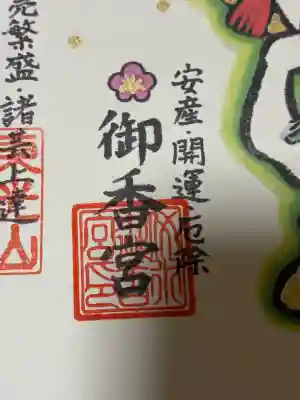 安産・開運厄除
御香宮
売繁盛・諸芸上達